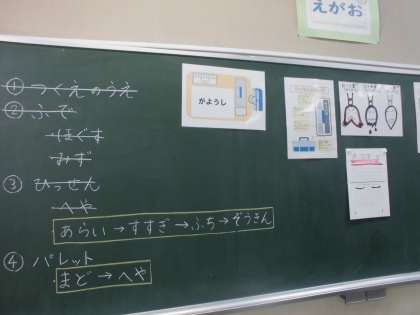 えがお
① つくえのうえ
② ふで
ほぐす
みず
③ ひっせん
へや
あらい→すすぎ→ふち→ぞうきん
④ パレット
まど→へや
がようし